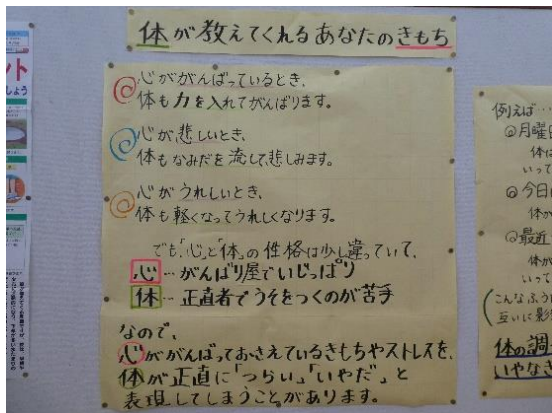 体が教えてくれるあなたのきもち
心ががんばっているとき、
体も力を入れてがんばります。
心が悲しいとき、
体もなみだを流して悲しみます。
心がうれしいとき、
体も軽くなってうれしくなります。
でも「心」と「体」の性格は少し違っていて、
心…がんばり屋でいじっぱり
体…正直者でうそをつくのが苦手
なので、
心ががんばっておさえているきもちやストレスを、
体が正直に「つらい」「いやだ」と
表現してしまうことがあります。
例えば…
◎月曜日
体は
いって
◎今日
体が
◎最近
体が
いって
(こんなふう
互いに影
体の調
いやなき
ント
しょう